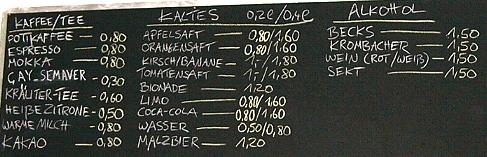 KAFFEE/TEE
POTTKAFFEE — 0,80
ESPRESSO — 0,80
MOKKA — 0,80
ÇAY_SEMAVER — 0,30
KRÄUTER-TEE — 0,60
HEIẞE ZITRONE - 0,50
WARME MILCH — 0,80
KAKAO — 0,80
KALTES 0,2l/0,4l
APFELSAFT — 0,80/1,60
ORANGENSAFT — 0,80/1,60
KIRSCH/BANANE — 1,-/1,80
TOMATENSAFT — 1,-/1,80
BIONADE — 1,20
LIMO — 0,80/1,60
COCA-COLA — 0,80/1,60
WASSER — 0,50/0,80
MALZBIER — 1,20
ALKOHOL
BECKS — 1,50
KROMBACHER — 1,50
WEIN (ROT/WEIß) — 1,50
SEKT — 1,50